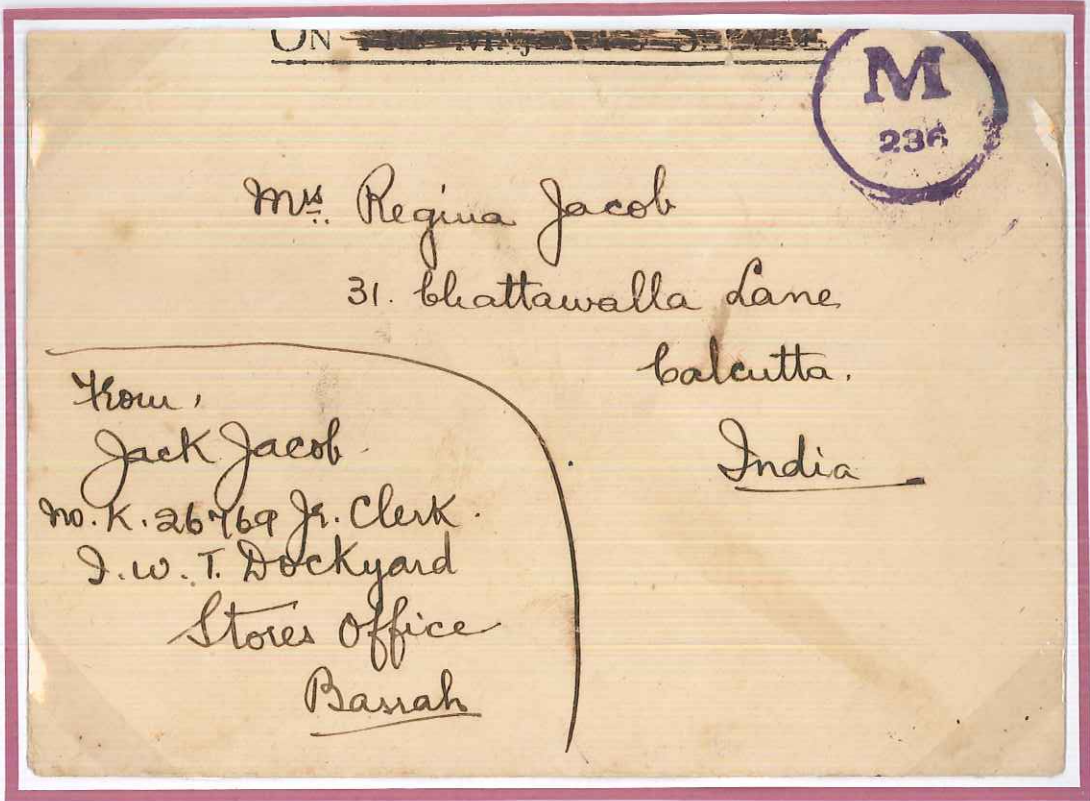 ON HIS MAJESTY'S SERVICE.
M
236
Mrs. Regina Jacob
31. Chattawalla Lane
Calcutta.
India
From,
Jack Jacob
No. K. 26769 Jr. Clerk.
I. W. T. Dockyard
Stores Office
Basrah